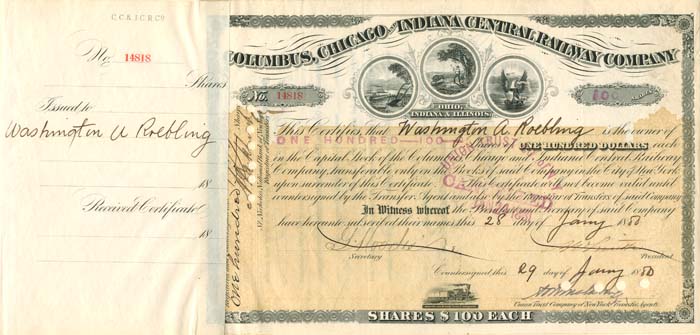 C.C. & I.C.R.Co.
No. 14818
Shares
Issued to
Washington A Roebling
18
Received Certificate
18
COLUMBUS, CHICAGO AND INDIANA CENTRAL RAILWAY COMPANY
No. 14818
OHIO,
INDIANA & ILLINOIS.
This Certifies, that Washington A. Roebling is the owner of
ONE HUNDRED—100 Shares of ONE HUNDRED DOLLARS each
in the Capital Stock of the Columbus, Chicago and Indiana Central Railway
Company, transferable only on the Books of said Company in the City of New York
upon surrender of this Certificate. This Certificate not become valid until
countersigned by the Transfer Agent and also by the Registrar of Transfers of said Company
In Witness whereof the President and Secretary of said Company
have hereunto subscribed their names this 28 day of Jany 1880
Secretary
President
Countersigned this 29 day of Jany 1880
Union Trust Company of New York Transfer Agents
SHARES $100 EACH
One hundred